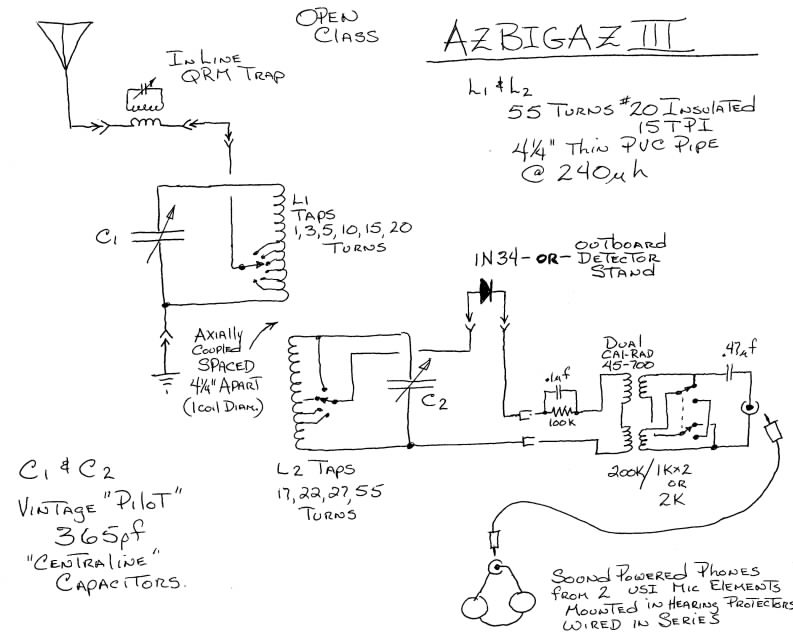 OPEN
CLASS
AZBIGAZ III
INLINE
QRM TRAP
L1 & L2
55 TURNS #20 INSULATED
15 TPI
4¼" THIN PVC PIPE
@ 240µh
C1
L1
TAPS
1, 3, 5, 10, 15, 20
TURNS
1N34 - OR - OUTBOARD
DETECTOR
STAND
AXIALLY
COUPLED
SPACED
4¼" APART
(1 COIL DIAM.)
C2
.1µf
100K
DUAL
CAL-RAD
45-700
.47µf
200K/1K×2
OR
2K
L2 TAPS
17, 22, 27, 55
TURNS
C1 & C2
VINTAGE "PILOT"
365pf
"CENTRALINE"
CAPACITORS.
SOUND POWERED PHONES
FROM 2 USI MIC ELEMENTS
MOUNTED IN HEARING PROTECTORS
WIRED IN SERIES